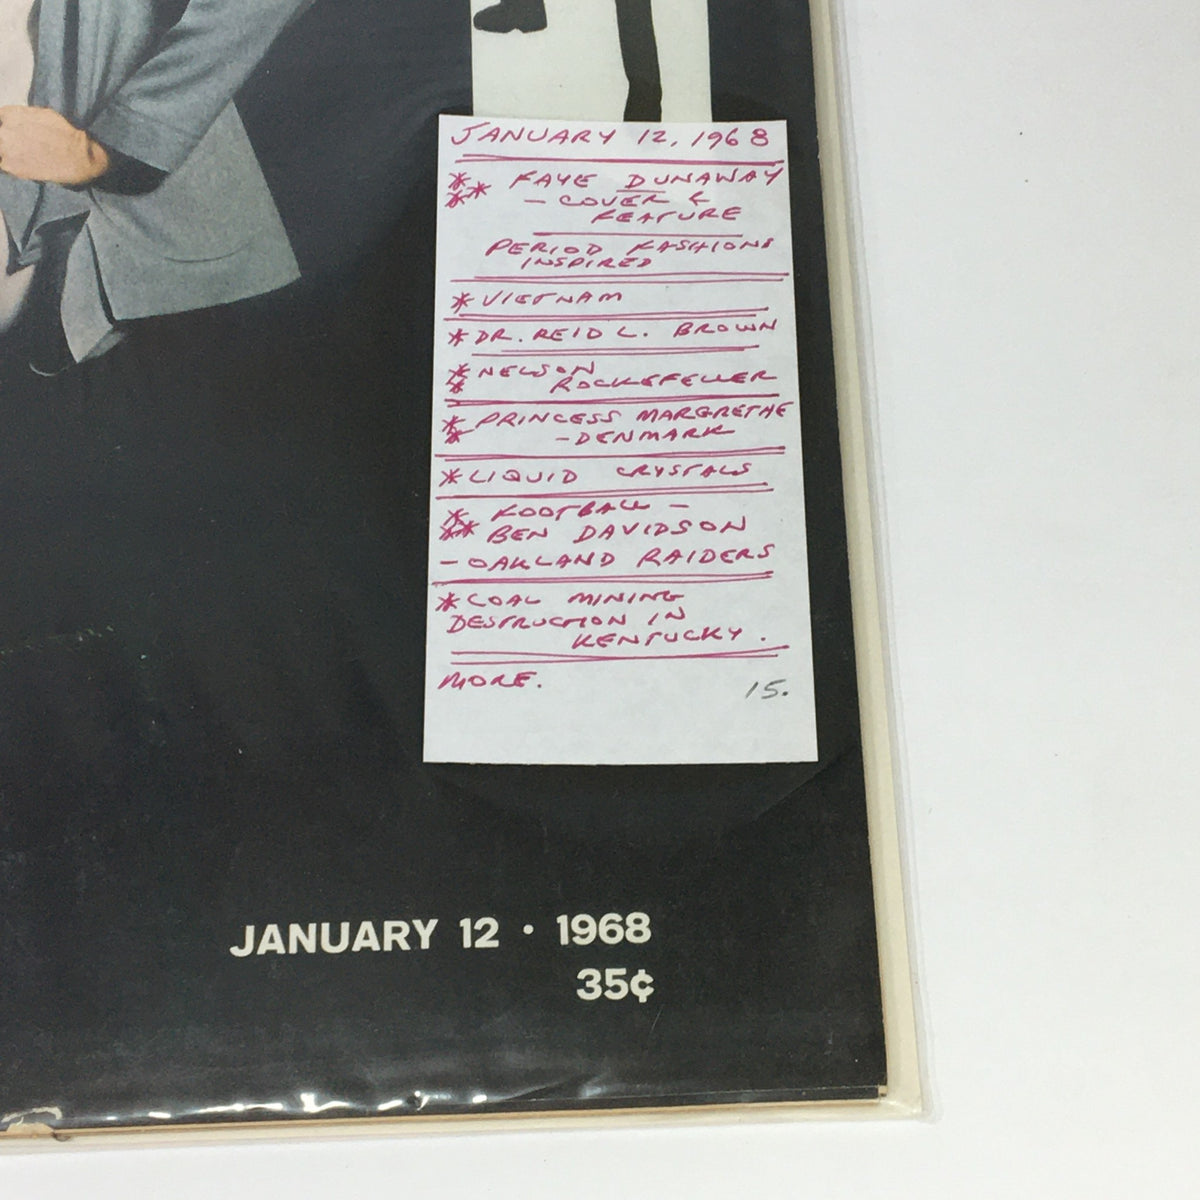 JANUARY 12, 1968
*** FAYE DUNAWAY
- COVER &
FEATURE
PERIOD FASHIONS
INSPIRED
* VIETNAM
* DR. REID L. BROWN
** NELSON
ROCKEFELLER
** PRINCESS MARGRETHE
- DENMARK
* LIQUID CRYSTALS
*** FOOTBALL -
BEN DAVIDSON
- OAKLAND RAIDERS
* COAL MINING
DESTRUCTION IN
KENTUCKY.
MORE.
15.
JANUARY 12 · 1968
35¢